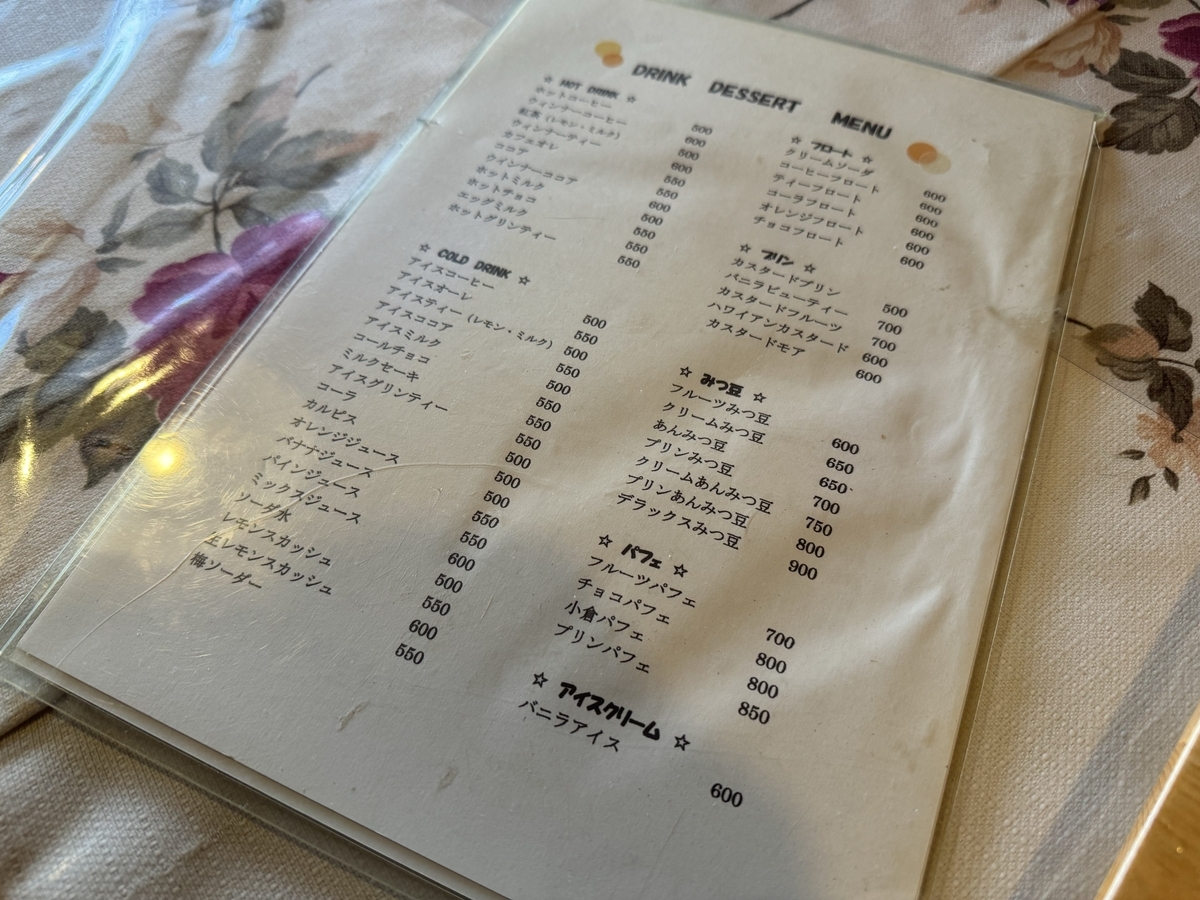 DRINK DESSERT MENU
☆ HOT DRINK ☆
ホットコーヒー 500
ウィンナーコーヒー 600
紅茶(レモン・ミルク) 500
ウィンナーティー 600
カフェオレ 550
ココア 550
ウインナーココア 600
ホットミルク 500
ホットチョコ 550
エッグミルク 550
ホットグリンティー 550
☆ COLD DRINK ☆
アイスコーヒー 500
アイスオーレ 550
アイスティー(レモン・ミルク) 500
アイスココア 550
アイスミルク 500
コールチョコ 550
ミルクセーキ 550
アイスグリンティー 550
コーラ 500
カルピス 500
オレンジジュース 500
バナナジュース 550
パインジュース 550
ミックスジュース 600
ソーダ水 500
レモンスカッシュ 550
生レモンスカッシュ 600
梅ソーダー 550
☆ フロート ☆
クリームソーダ 600
コーヒーフロート 600
ティーフロート 600
コーラフロート 600
オレンジフロート 600
チョコフロート 600
☆ プリン ☆
カスタードプリン 500
バニラビューティー 700
カスタードフルーツ 700
ハワイアンカスタード 600
カスタードモア 600
☆ みつ豆 ☆
フルーツみつ豆 600
クリームみつ豆 650
あんみつ豆 650
プリンみつ豆 700
クリームあんみつ豆 750
プリンあんみつ豆 800
デラックスみつ豆 900
☆ パフェ ☆
フルーツパフェ 700
チョコパフェ 800
小倉パフェ 800
プリンパフェ 850
☆ アイスクリーム ☆
バニラアイス 600